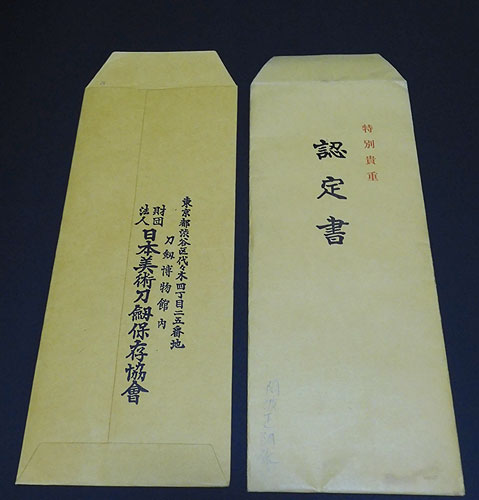 特別貴重
認定書
東京都渋谷区代々木四丁目二五番地
刀剱博物館内
財団法人
日本美術刀剱保存協會